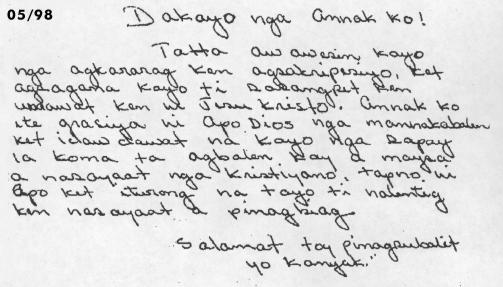 05/98
Dakayo nga annak ko!
Tatta aw awesin, kayo
nga agkararag ken agsakripisyo, ket
agsagana kayo ti sabangput ken
umawat ken ni Jesu Kristo. Annak ko
ite grasiya ni Apo Dios nga mannakabalen
ket idaw dawat na kayo nga sapay
la koma ta agbalen kay a maysa
a nasayaat nga kristiyano, tapno ni
Apo ket iturong na tayo ti nalinteg
ken nasayaat a pinagbiag.
Salamat toy pinagsubalit
yo kanyak."